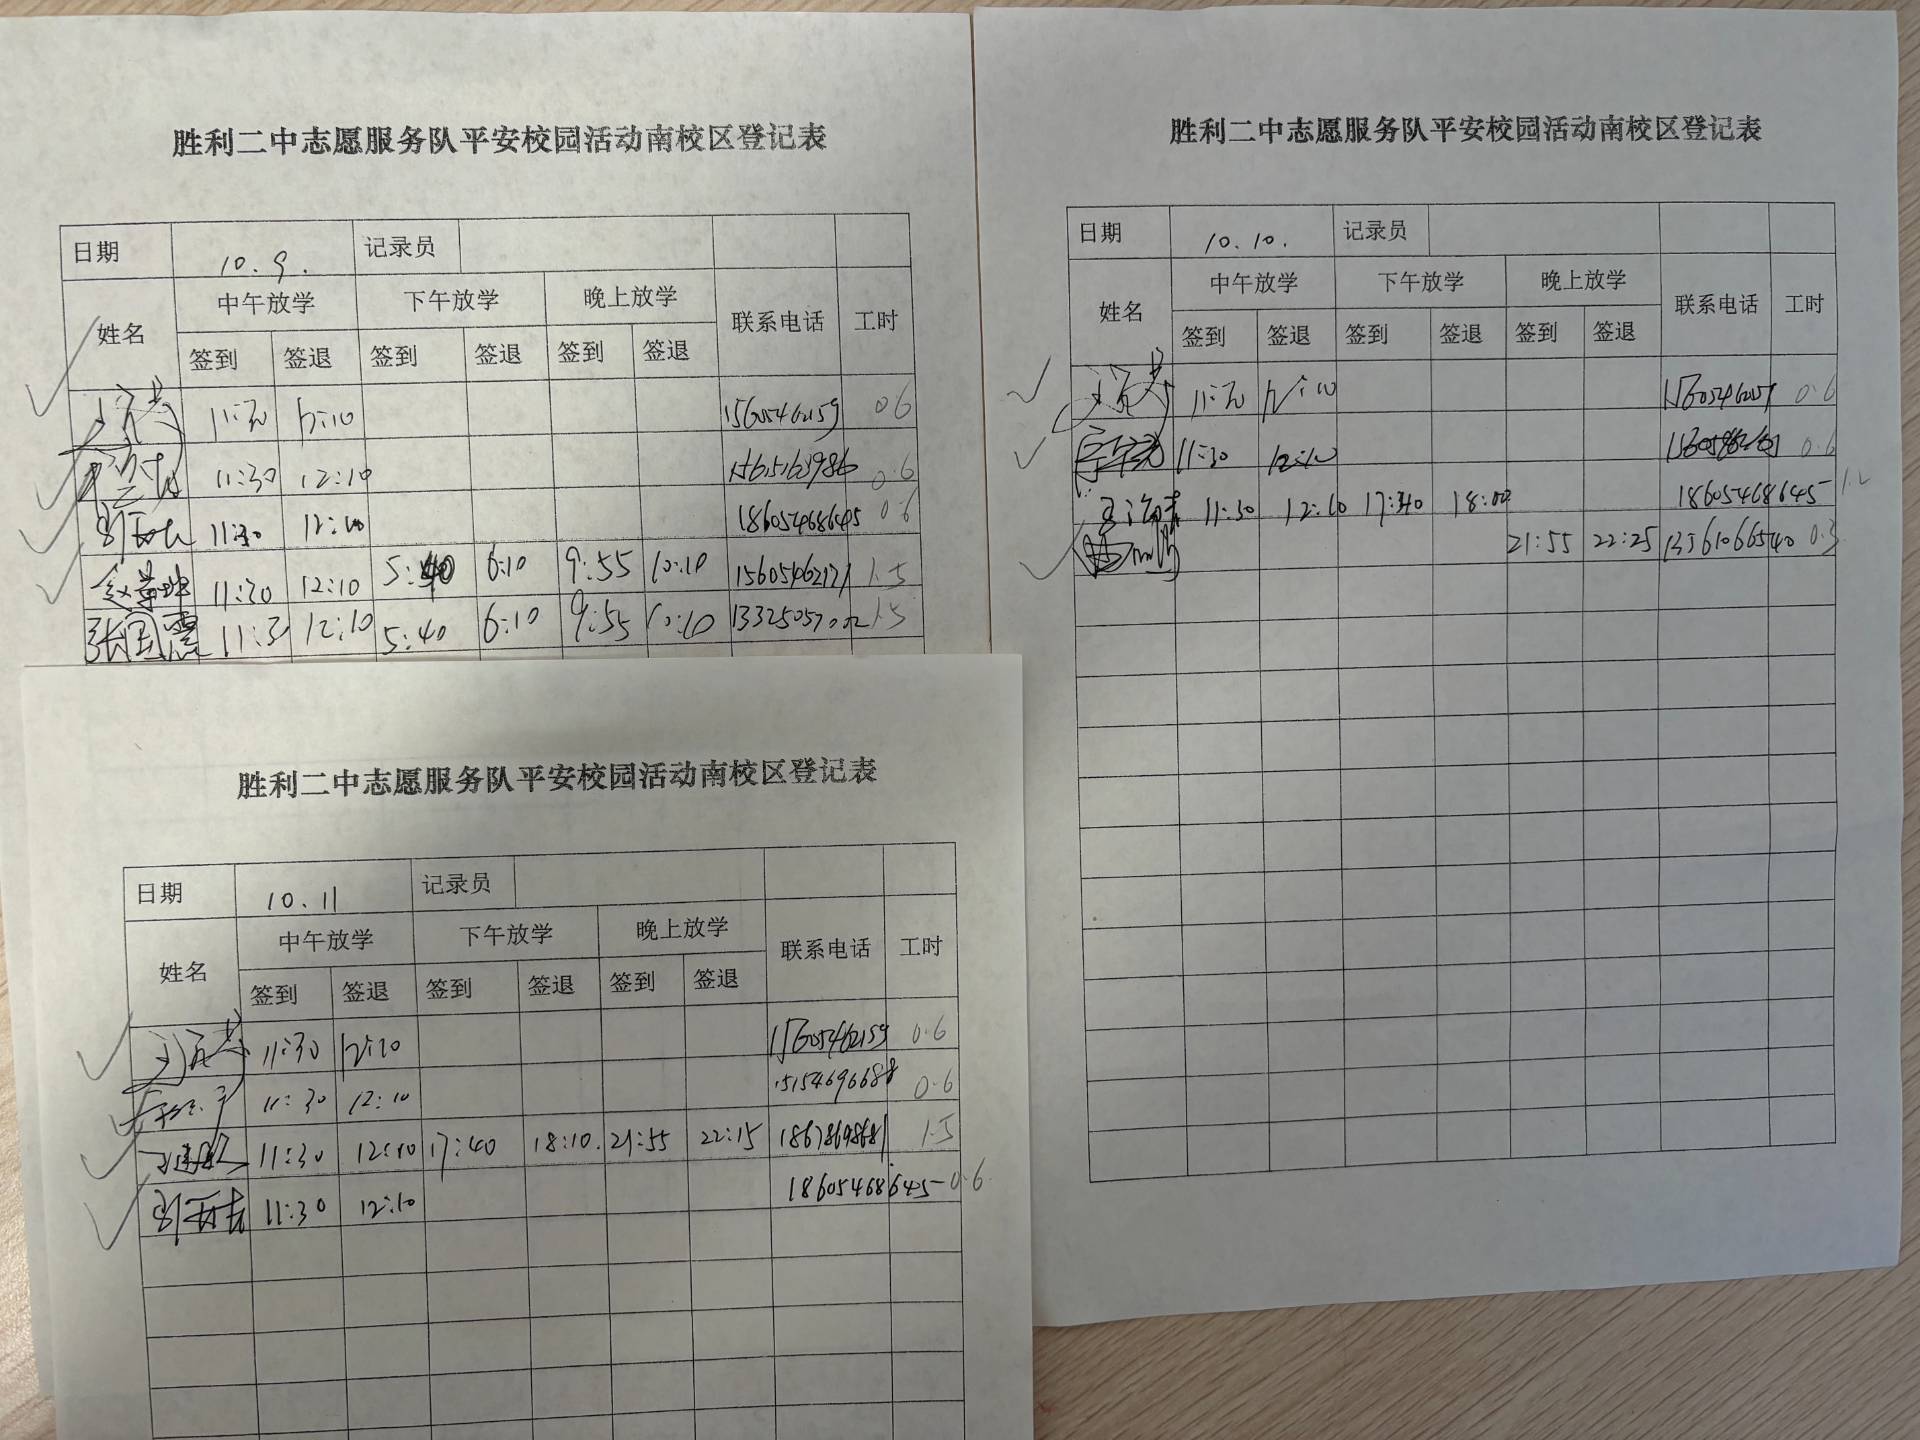 胜利二中志愿服务队平安校园活动南校区登记表
日期 10.9. 记录员
姓名 中午放学 下午放学 晚上放学 联系电话 工时
签到 签退 签到 签退 签到 签退
11:30 12:10 15605462159 0.6
11:30 12:10 0.6
11:30 12:10 18605468645 0.6
11:30 12:10 5:40 6:10 9:55 10:10 1.5
张国震 11:30 12:10 5:40 6:10 9:55 10:10 1.5
胜利二中志愿服务队平安校园活动南校区登记表
日期 10.10. 记录员
姓名 中午放学 下午放学 晚上放学 联系电话 工时
签到 签退 签到 签退 签到 签退
11:30 12:10 15605462159 0.6
11:30 12:10 0.6
11:30 12:10 17:40 18:00 18605468645 1.2
21:55 22:25 13561066540 0.3
胜利二中志愿服务队平安校园活动南校区登记表
日期 10.11 记录员
姓名 中午放学 下午放学 晚上放学 联系电话 工时
签到 签退 签到 签退 签到 签退
11:30 12:10 15605462159 0.6
11:30 12:10 15154696688 0.6
11:30 12:10 17:40 18:10. 21:55 22:15 18678698681 1.5
11:30 12:10 18605468645 0.6